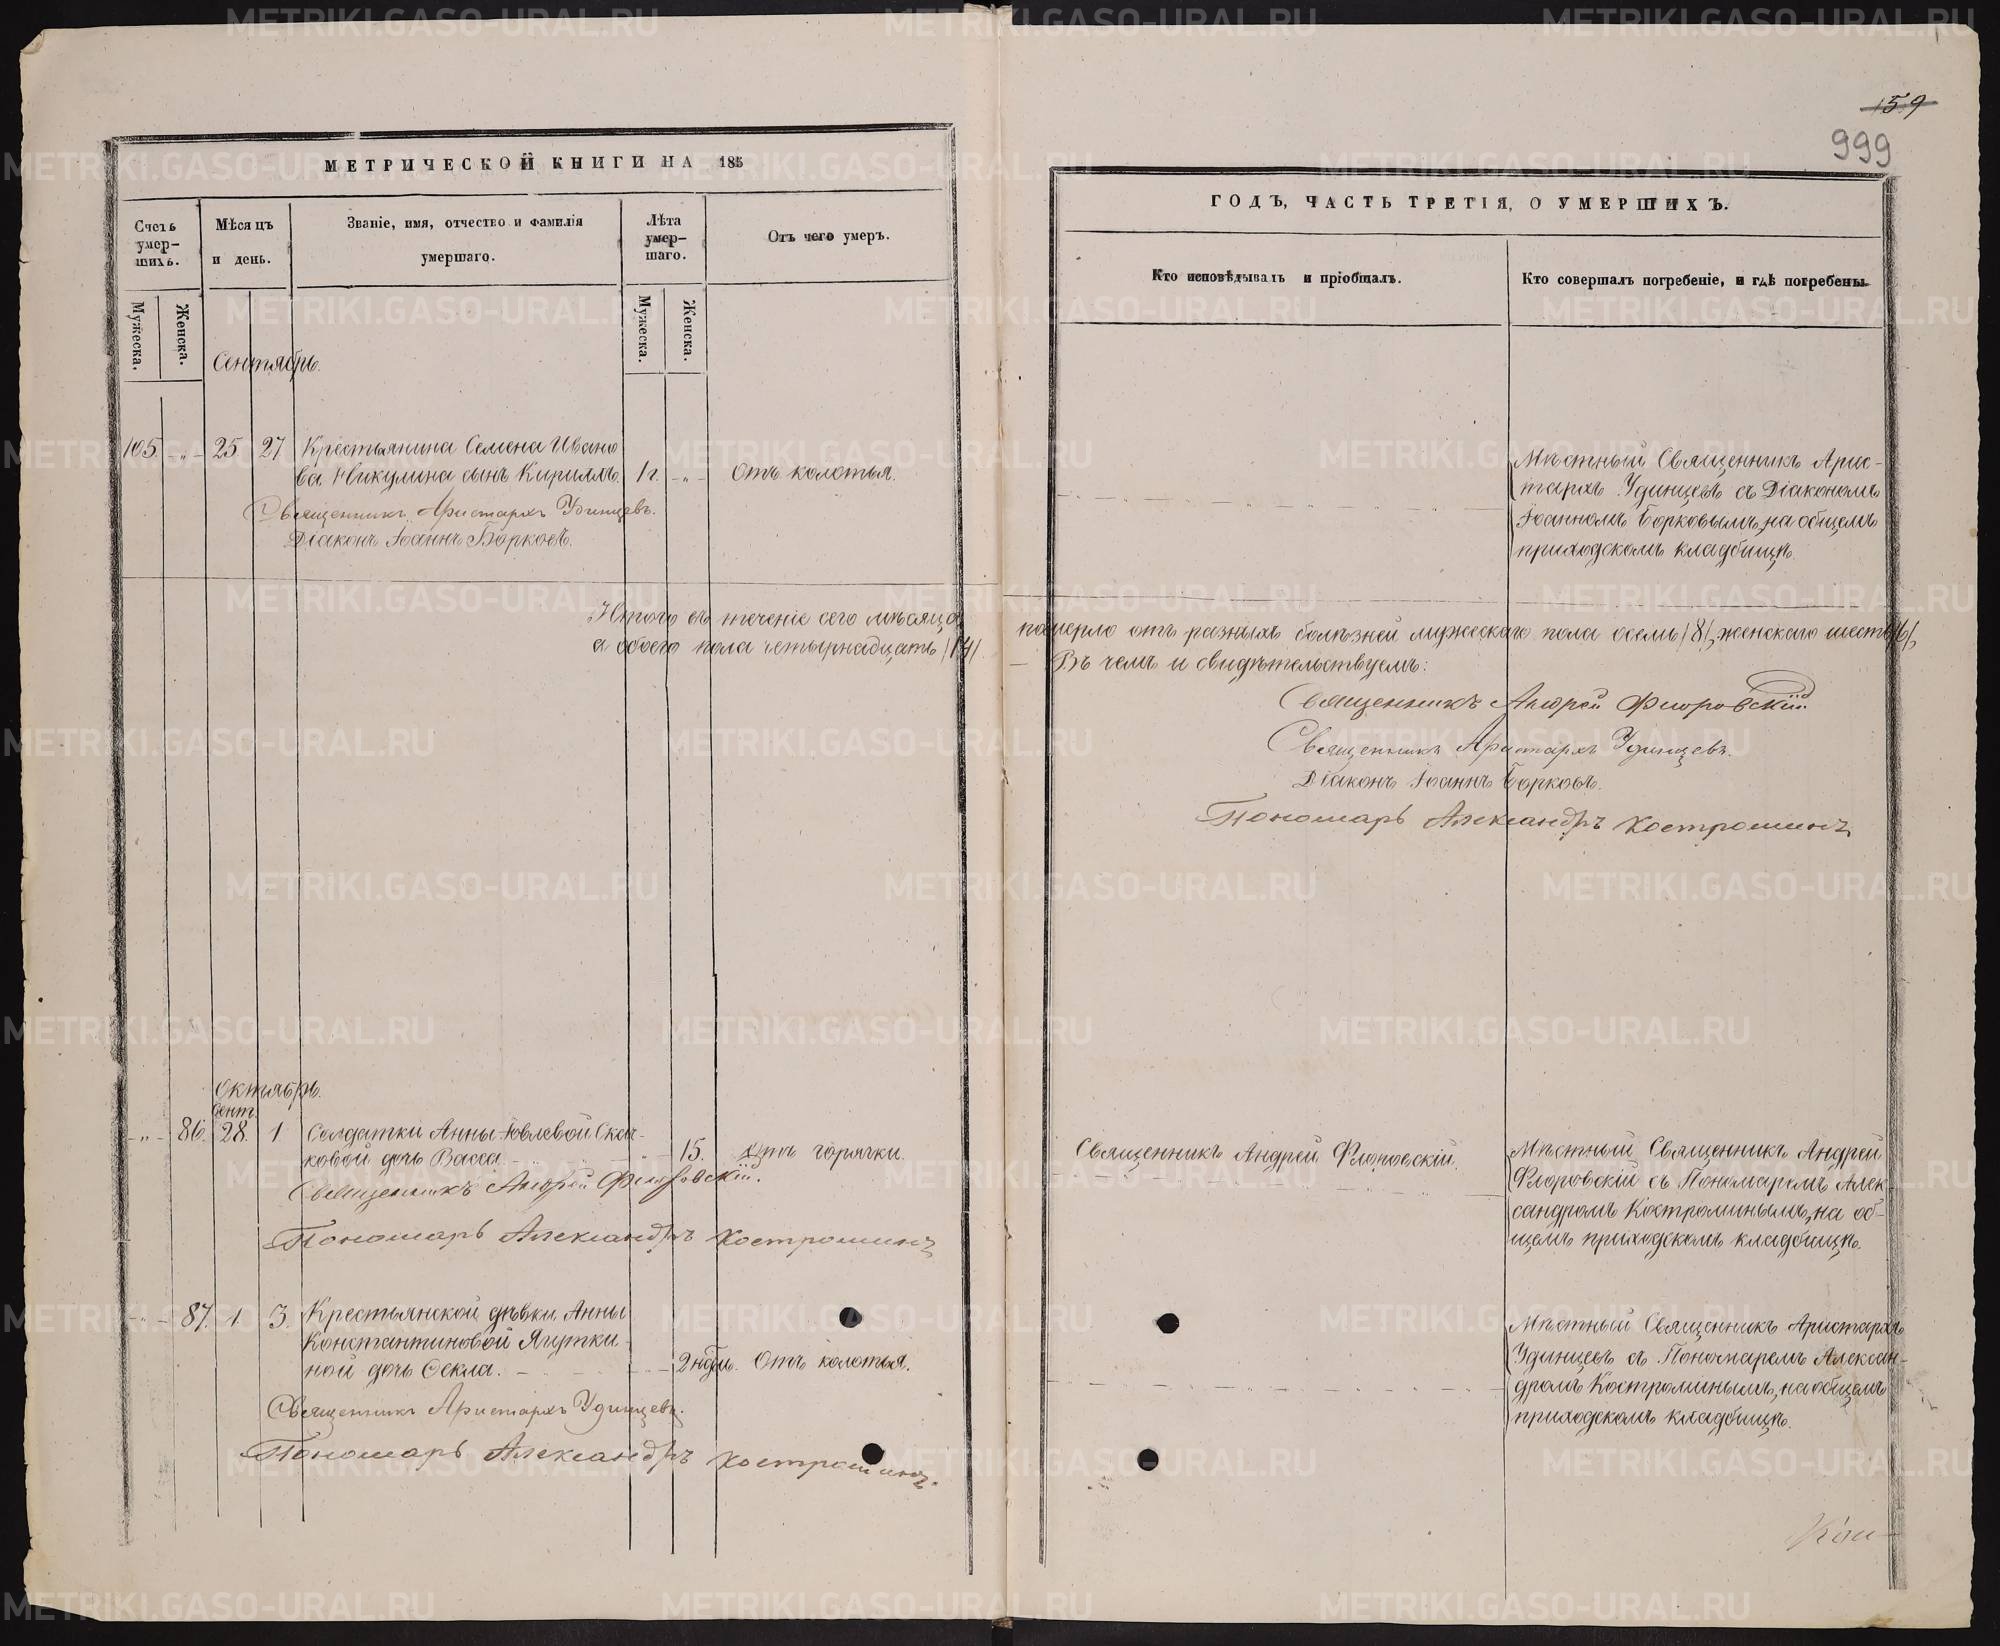 159
999
МЕТРИЧЕСКОЙ КНИГИ НА 185
ГОДЪ, ЧАСТЬ ТРЕТІЯ, О УМЕРШИХЪ.
Счетъ умер-шихъ.
Мѣсяцъ и день.
Званіе, имя, отчество и фамилія умершаго.
Лѣта умер-шаго.
Отъ чего умеръ.
Кто исповѣдывалъ и пріобщалъ.
Кто совершалъ погребеніе, и гдѣ погребены.
Мужеска.
Женска.
Мужеска.
Женска.
Сентябрь.
105. - „ - 25. 27. Крестьянина Семена Ивано
ва Никулина сынъ Кириллъ. 1 г. - „ - Отъ колотья.
Священникъ Аристархъ Удинцевъ.
Діаконъ Іоаннъ Борковъ.
Мѣстный Священникъ Арис-
тархъ Удинцевъ съ Діакономъ
Іоанномъ Борковымъ, на общемъ
приходскомъ кладбищѣ.
Итого въ теченіе сего мѣсяца
померло отъ разныхъ болѣзней мужескаго пола осемь /8/, женскаго шесть /6/,
а обоего пола четырнадцать /14/.
Въ чемъ и свидѣтельствуемъ:
Священникъ Андрей Флоровскій
Священникъ Аристархъ Удинцевъ.
Діаконъ Іоаннъ Борковъ.
Пономарь Александръ Костроминъ
Октябрь.
Сент.
- „ - 86. 28. 1. Солдатки Анны Іовлевой
ковой дочь Васса. - „ - 15. Отъ горячки.
Священникъ Андрей Флоровскій.
Пономарь Александръ Костроминъ
Священникъ Андрей Флоровскій.
Мѣстный Священникъ Андрей
Флоровскій съ Пономаремъ Алек-
сандромъ Костроминымъ, на об-
щемъ приходскомъ кладбищѣ.
- „ - 87. 1. 3. Крестьянской дѣвки Анны
Константиновой Ягутки-
ной дочь Ѳекла. 2 нѣди. Отъ колотья.
Священникъ Аристархъ Удинцевъ.
Пономарь Александръ Костроминъ.
Мѣстный Священникъ Аристархъ
Удинцевъ съ Пономаремъ Алексан-
дромъ Костроминымъ, на общемъ
приходскомъ кладбищѣ.
METRIKI.GASO-URAL.RU